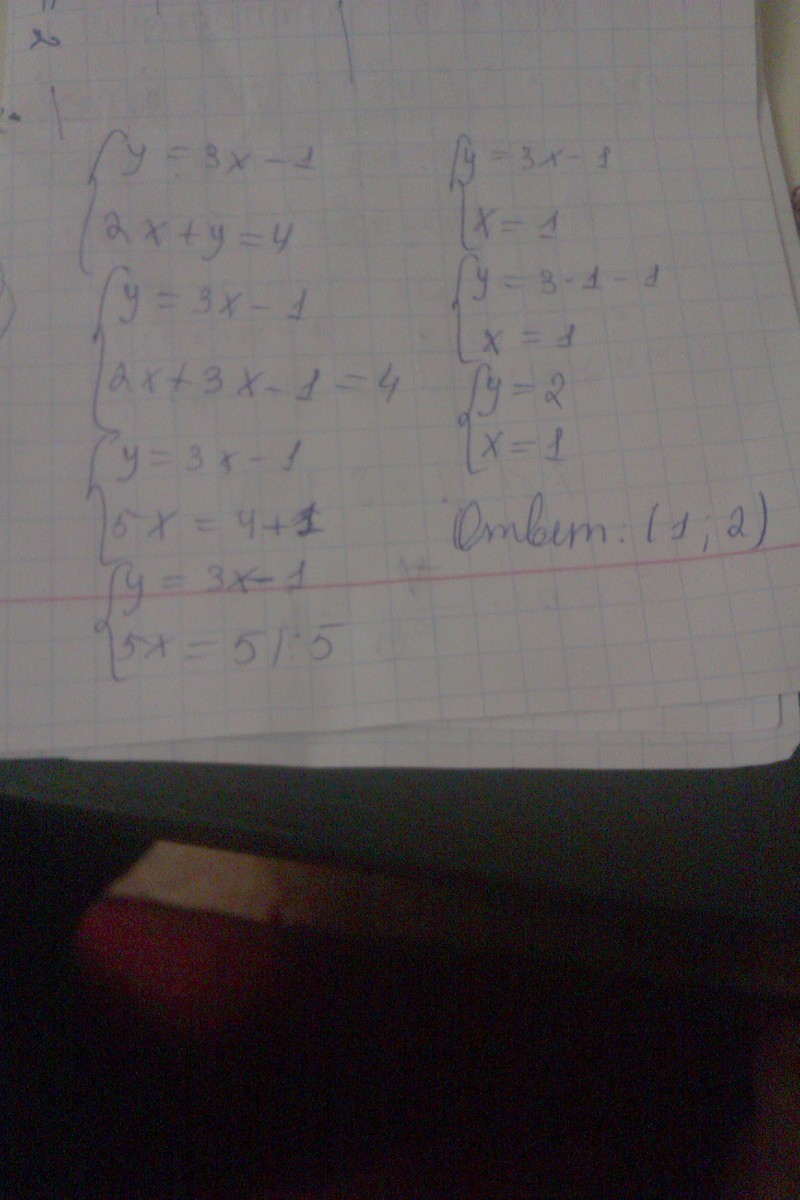 y = 3x - 1
2x + y = 4
y = 3x - 1
2x + 3x - 1 = 4
y = 3x - 1
5x = 4 + 1
y = 3x - 1
5x = 5 | : 5
y = 3x - 1
x = 1
y = 3 · 1 - 1
x = 1
y = 2
x = 1
Ответ: (1; 2)